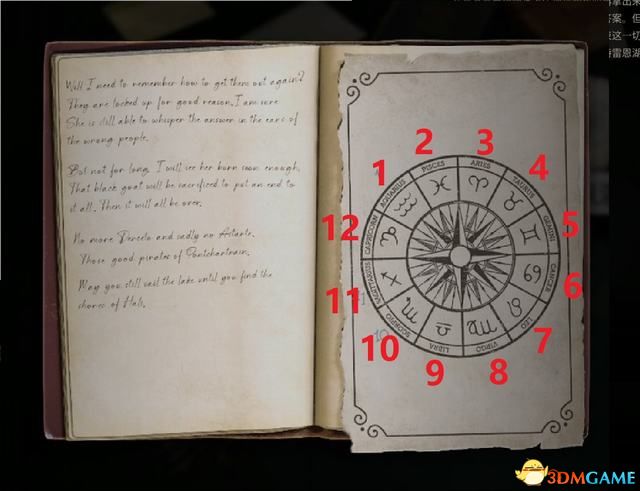 Will I need to remember how to get them out again?
They are locked up for good reason. I am sure
She is still able to whisper the answer in the ears of
the wrong people.
But not for long. I will see her burn soon enough.
That black goat will be sacrificed to put an end to
it all. Then it will all be over.
No more Derceto and sadly no Astarte.
Those good pirates of Pontchartrain.
May you still sail the lake until you find the
shores of Hali.
1
2
3
4
5
6
7
8
9
10
11
12
AQUARIUS
PISCES
ARIES
TAURUS
GEMINI
CANCER
LEO
VIRGO
LIBRA
SCORPIO
SAGITTARIUS
CAPRICORN
3DMGAME